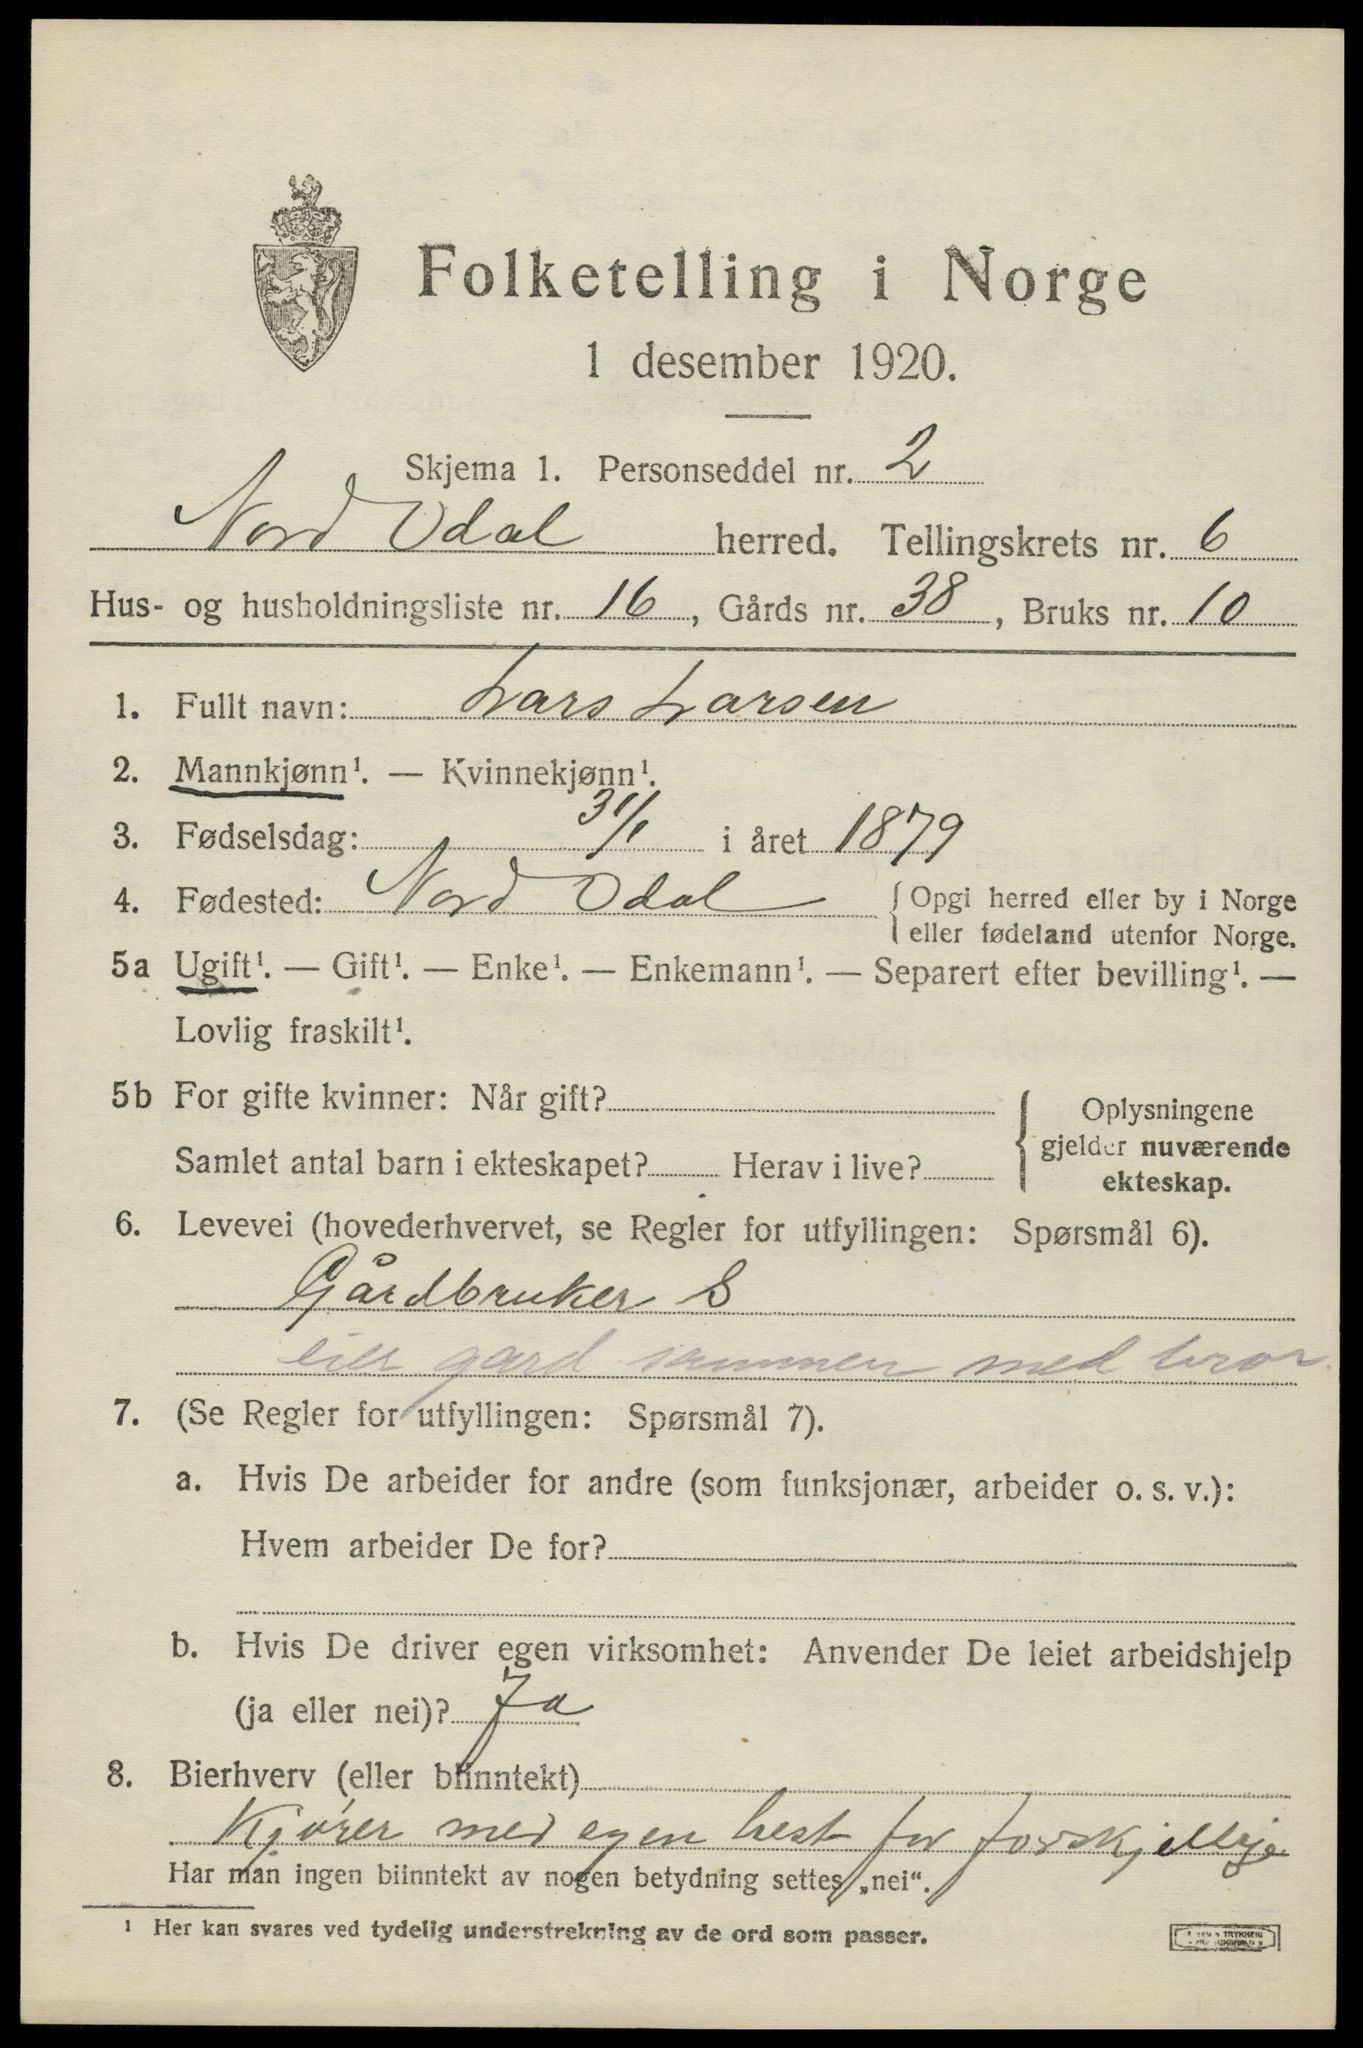 Folketelling i Norge
1 desember 1920.
Skjema 1. Personseddel nr. 2
Nord Odal herred. Tellingskrets nr. 6
Hus- og husholdningsliste nr. 16, Gårds nr. 38, Bruks nr. 10
1. Fullt navn: Lars Larsen
2. Mannkjønn¹. — Kvinnekjønn¹.
3. Fødselsdag: 31/1 i året 1879
4. Fødested: Nord Odal { Opgi herred eller by i Norge
eller fødeland utenfor Norge.
5a Ugift¹. — Gift¹. — Enke¹. — Enkemann¹. — Separert efter bevilling¹. —
Lovlig fraskilt¹.
5b For gifte kvinner: Når gift?
Samlet antal barn i ekteskapet? Herav i live?
{ Oplysningene
gjelder nuværende
ekteskap.
6. Levevei (hovederhvervet, se Regler for utfyllingen: Spørsmål 6).
Gårdbruker S
eier gard sammen med bror
7. (Se Regler for utfyllingen: Spørsmål 7).
a. Hvis De arbeider for andre (som funksjonær, arbeider o. s. v.):
Hvem arbeider De for?
b. Hvis De driver egen virksomhet: Anvender De leiet arbeidshjelp
(ja eller nei)? Ja
8. Bierhverv (eller biinntekt)
Kjører med egen hest for forskjellige
Har man ingen biinntekt av nogen betydning settes „nei“.
¹ Her kan svares ved tydelig understrekning av de ord som passer.